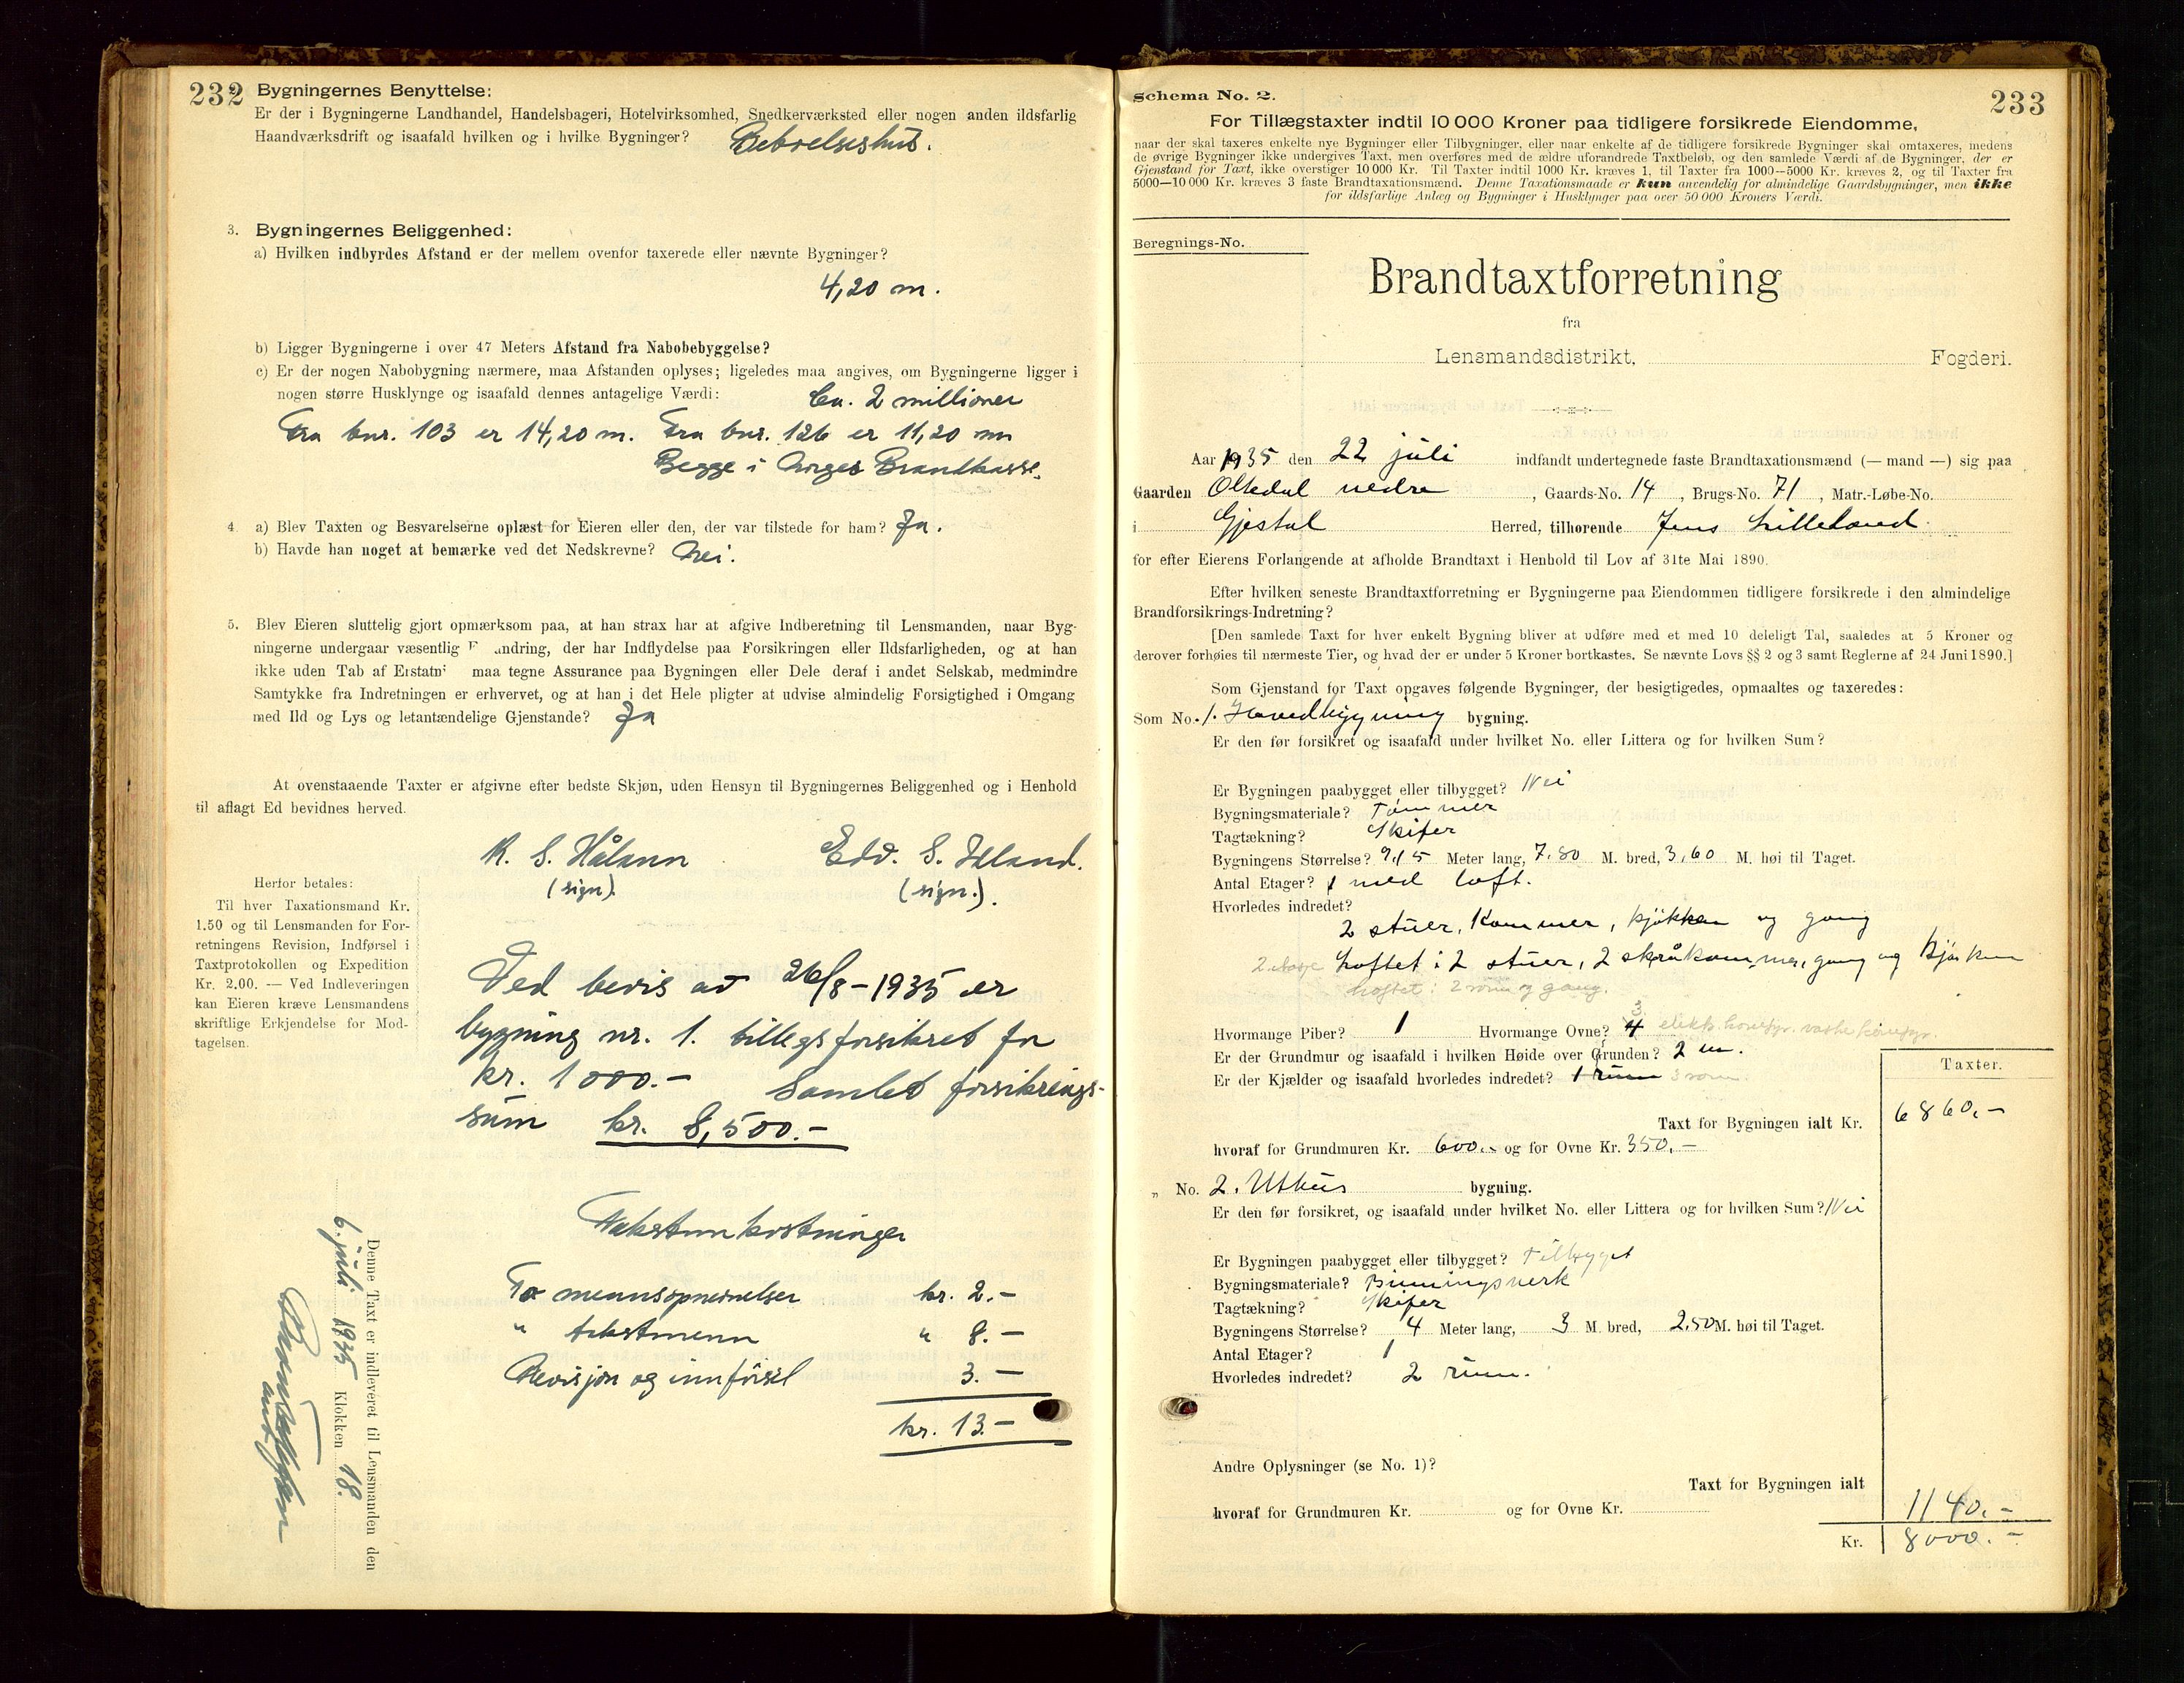 232
Bygningernes Benyttelse:
Er der i Bygningerne Landhandel, Handelsbageri, Hotelvirksomhed, Snedkerværksted eller nogen anden ildsfarlig
Haandværksdrift og isaafald hvilken og i hvilke Bygninger? Beboelseshus.
3. Bygningernes Beliggenhed:
a) Hvilken indbyrdes Afstand er der mellem ovenfor taxerede eller nævnte Bygninger?
4,20 m.
b) Ligger Bygningerne i over 47 Meters Afstand fra Nabobebyggelse?
c) Er der nogen Nabobygning nærmere, maa Afstanden oplyses; ligeledes maa angives, om Bygningerne ligger i
nogen større Husklynge og isaafald dennes antagelige Værdi: Ca. 2 millioner
Fra bnr. 103 er 14,20 m. Fra bnr. 126 er 11,20 m
Begge i Norges Brandkasse.
4. a) Blev Taxten og Besvarelserne oplæst for Eieren eller den, der var tilstede for ham? Ja.
b) Havde han noget at bemærke ved det Nedskrevne? Nei.
5. Blev Eieren sluttelig gjort opmærksom paa, at han strax har at afgive Indberetning til Lensmanden, naar Byg-
ningerne undergaar væsentlig F andring, der har Indflydelse paa Forsikringen eller Ildsfarligheden, og at han
ikke uden Tab af Erstatn maa tegne Assurance paa Bygningen eller Dele deraf i andet Selskab, medmindre
Samtykke fra Indretningen er erhvervet, og at han i det Hele pligter at udvise almindelig Forsigtighed i Omgang
med Ild og Lys og letantændelige Gjenstande? Ja
At ovenstaaende Taxter er afgivne efter bedste Skjøn, uden Hensyn til Bygningernes Beliggenhed og i Henhold
til aflagt Ed bevidnes herved.
K. S. Håland Edv. S. Island.
(sign). (sign.).
Herfor betales:
Til hver Taxationsmand Kr.
1.50 og til Lensmanden for For-
retningens Revision, Indførsel i
Taxtprotokollen og Expedition
Kr. 2.00. — Ved Indleveringen
kan Eieren kræve Lensmandens
skriftlige Erkjendelse for Mod-
tagelsen.
Ved bevis av 26/8-1935 er
bygning nr. 1. tillegsforsikret for
kr. 1000.- Samlet forsikrings-
sum kr. 8,500.-
Takstomkostninger
For mennsopnevnelser kr. 2.-
" takstmenn " 8.-
Revisjon og innførsel 3.-
kr. 13.-
Denne Taxt er indleveret til Lensmanden den
6. juli 1935 Klokken 18.
Schema No. 2.
233
For Tillægstaxter indtil 10 000 Kroner paa tidligere forsikrede Eiendomme,
naar der skal taxeres enkelte nye Bygninger eller Tilbygninger, eller naar enkelte af de tidligere forsikrede Bygninger skal omtaxeres, medens
de øvrige Bygninger ikke undergives Taxt, men overføres med de ældre uforandrede Taxtbeløb, og den samlede Værdi af de Bygninger, der er
Gjenstand for Taxt, ikke overstiger 10 000 Kr. Til Taxter indtil 1000 Kr. kræves 1, til Taxter fra 1000—5000 Kr. kræves 2, og til Taxter fra
5000—10 000 Kr. kræves 3 faste Brandtaxationsmænd. Denne Taxationsmaade er kun anvendelig for almindelige Gaardsbygninger, men ikke
for ildsfarlige Anlæg og Bygninger i Husklynger paa over 50 000 Kroners Værdi.
Beregnings-No.
Brandtaxtforretning
fra
Lensmandsdistrikt, Fogderi.
Aar 1935 den 22 juli indfandt undertegnede faste Brandtaxationsmænd (— mand —) sig paa
Gaarden Oltedal nedre, Gaards-No. 14, Brugs-No. 71, Matr.-Løbe-No.
i Gjestal Herred, tilhørende Jens Lilleland
for efter Eierens Forlangende at afholde Brandtaxt i Henhold til Lov af 31te Mai 1890.
Efter hvilken seneste Brandtaxtforretning er Bygningerne paa Eiendommen tidligere forsikrede i den almindelige
Brandforsikrings-Indretning?
[Den samlede Taxt for hver enkelt Bygning bliver at udføre med et med 10 deleligt Tal, saaledes at 5 Kroner og
derover forhøies til nærmeste Tier, og hvad der er under 5 Kroner bortkastes. Se nævnte Lovs §§ 2 og 3 samt Reglerne af 24 Juni 1890.]
Som Gjenstand for Taxt opgaves følgende Bygninger, der besigtigedes, opmaaltes og taxeredes:
Som No. 1. Hovedbygning bygning.
Er den før forsikret og isaafald under hvilket No. eller Littera og for hvilken Sum?
Er Bygningen paabygget eller tilbygget? Nei
Bygningsmateriale? Tømmer
Tagtækning? Skifer
Bygningens Størrelse? 9,15 Meter lang, 7,80 M. bred, 3,60 M. høi til Taget.
Antal Etager? 1 med loft.
Hvorledes indredet?
2 stuer, kammer, kjøkken og gang
2 etasje Loftet: 2 stuer, 2 skråkammer, gang og kjøkken
Loftet: 2 rom og gang.
3
Hvormange Piber? 1 Hvormange Ovne? 4 elekt. komfyr. vaske komfyr.
Er der Grundmur og isaafald i hvilken Høide over Grunden? 2 m.
Er der Kjælder og isaafald hvorledes indredet? 1 rum 3 rom.
Taxter.
Taxt for Bygningen ialt Kr. 6860.-
hvoraf for Grundmuren Kr. 600.- og for Ovne Kr. 350.-
" No. 2. Uthus bygning.
Er den før forsikret, og isaafald under hvilket No. eller Littera og for hvilken Sum? Nei
Er Bygningen paabygget eller tilbygget? Tilbygget
Bygningsmateriale? Binningsverk
Tagtækning? Skifer
Bygningens Størrelse? 4 Meter lang, 3 M. bred, 2.50 M. høi til Taget.
Antal Etager? 1
Hvorledes indredet? 2 rum.
Andre Oplysninger (se No. 1)?
Taxt for Bygningen ialt 1140.-
hvoraf for Grundmuren Kr. og for Ovne Kr.
Kr. 8000.-